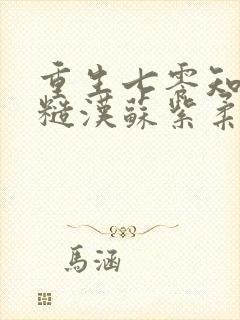 重生七零知
糙漢蘇紫柔
馬涵